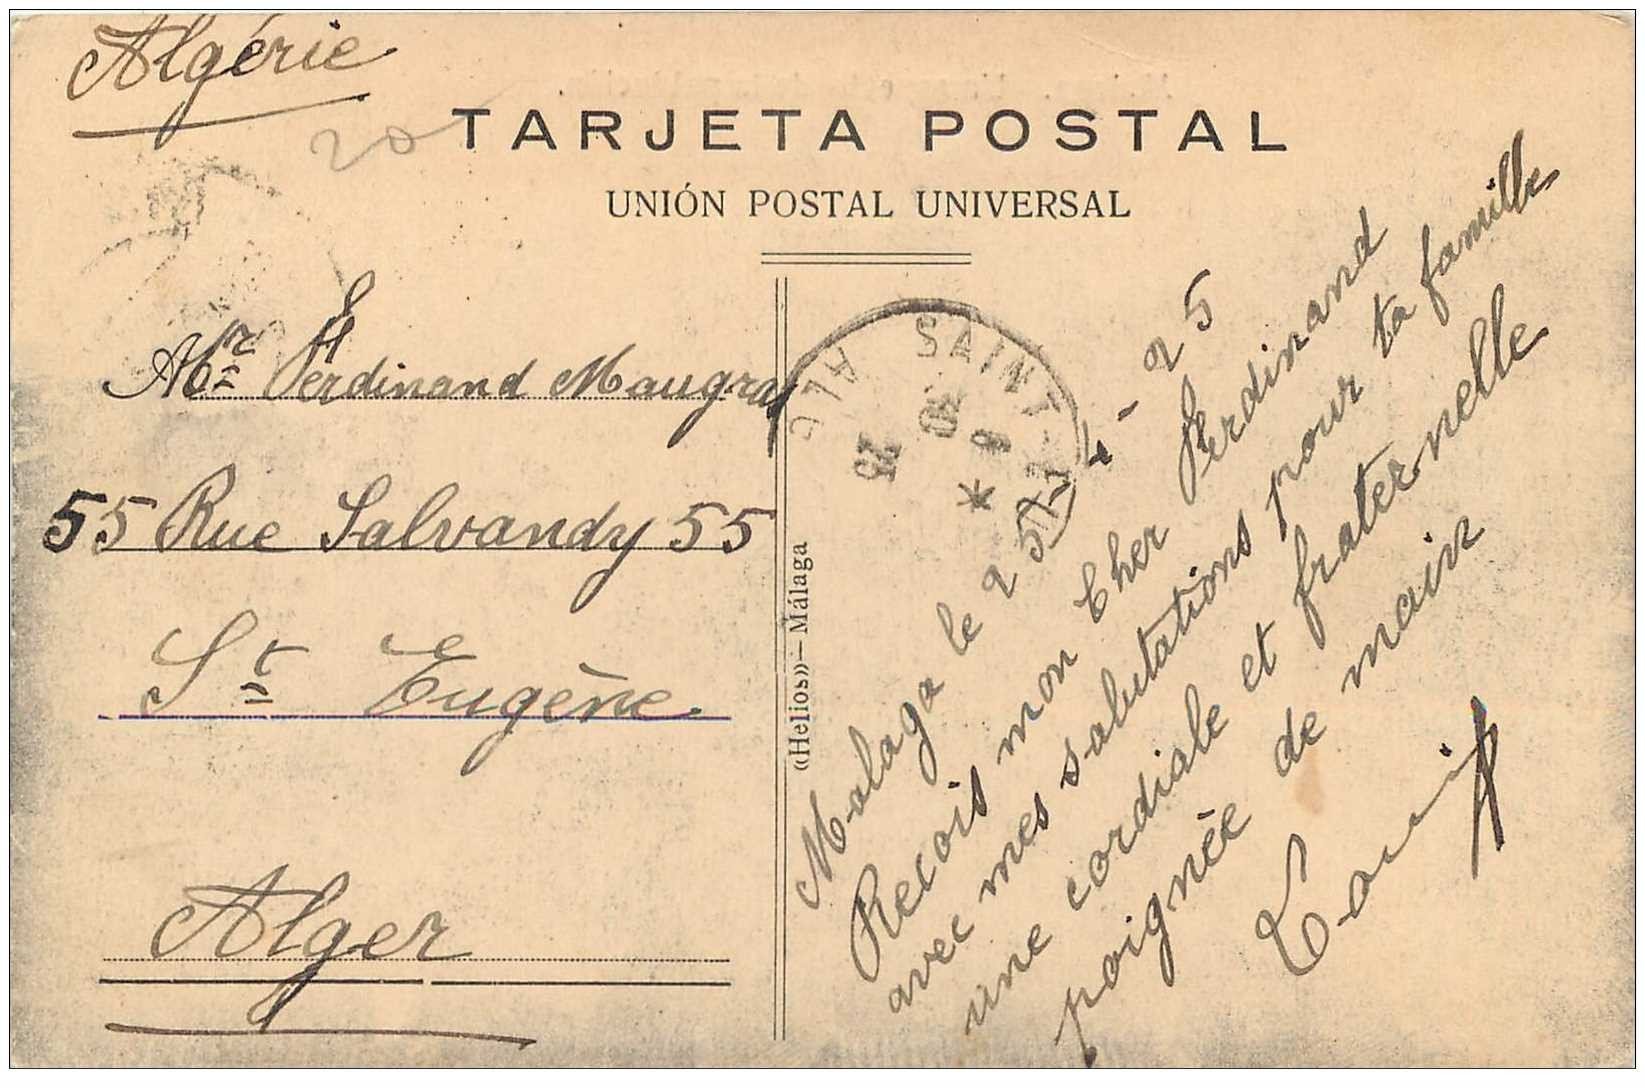 Algérie
20
TARJETA POSTAL
UNIÓN POSTAL UNIVERSAL
Mr Ferdinand Maugras
55 Rue Salvandy 55
St Eugène
Alger
«Helios»—Málaga
SAINT-
ALG
* 8
30
25
Malaga le 25-4-25
Recois mon Cher Ferdinand
avec mes salutations pour ta famille
une cordiale et fraternelle
poignée de main